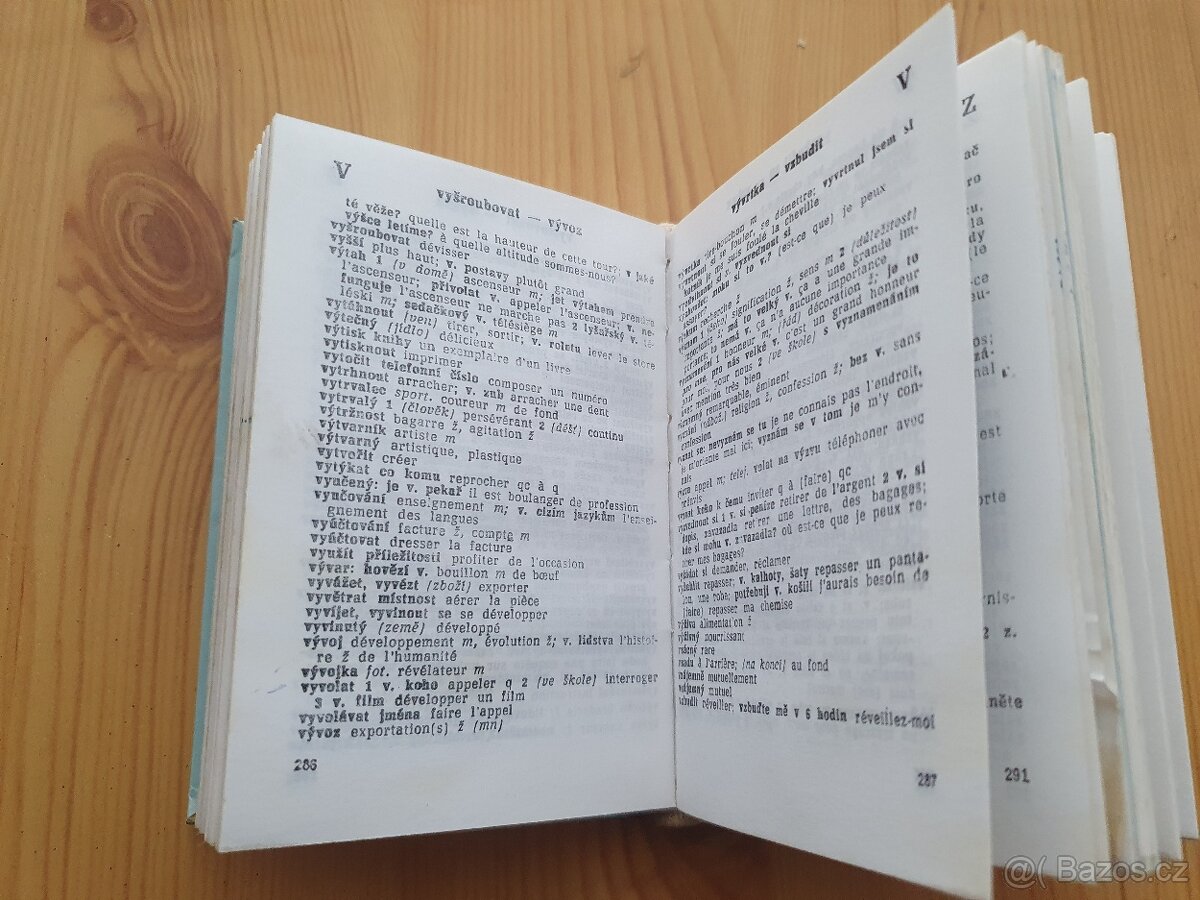 V
vyšroubovat — vývoz
té věže? quelle est la hauteur de cette tour?; v jaké
výšce letíme? à quelle altitude sommes-nous?
vyšroubovat dévisser
vyšší plus haut; v. postavy plutôt grand
výtah 1 (v domě) ascenseur m; jet výtahem prendre
l'ascenseur; přivolat v. appeler l'ascenseur; v. ne-
funguje l'ascenseur ne marche pas 2 lyžařský v. té-
léski m; sedačkový v. télésiège m
vytáhnout (ven) tirer, sortir; v. roletu lever le store
výtečný (jídlo) délicieux
výtisk knihy un exemplaire d'un livre
vytisknout imprimer
vytočit telefonní číslo composer un numéro
vytrhnout arracher; v. zub arracher une dent
vytrvalec sport. coureur m de fond
vytrvalý 1 (člověk) persévérant 2 (déšť) continu
výtržnost bagarre ž, agitation ž
výtvarník artiste m
výtvarný artistique, plastique
vytvořit créer
vytýkat co komu reprocher qc à q
vyučený: je v. pekař il est boulanger de profession
vyučování enseignement m; v. cizím jazykům l'ensei-
gnement des langues
vyúčtování facture ž, compte m
vyúčtovat dresser la facture
využít příležitosti profiter de l'occasion
vývar: hovězí v. bouillon m de bœuf
vyvážet, vyvézt (zboží) exporter
vyvětrat místnost aérer la pièce
vyvíjet, vyvinout se se développer
vyvinutý (země) développé
vývoj développement m, évolution ž; v. lidstva l'histoi-
re ž de l'humanité
vývojka fot. révélateur m
vyvolat 1 v. koho appeler q 2 (ve škole) interroger
3 v. film développer un film
vyvolávat jména faire l'appel
vývoz exportation(s) ž (mn)
286
V
vývrtka — vzbudit
vývrtka tire-bouchon m
si to fouler, se démettre; vyvrtnul jsem si
je me suis foulé la cheville
si v. vyzvednout si
mohu si to v.? (est-ce que) je peux
recherche ž
signification ž, sens m 2 (důležitost)
importance ž; má to velký v. ça a une grande im-
portance; to nemá v. ça n'a aucune importance
vyznamenání 1 honneur m; (řád) décoration ž; je to
pro nás velké v. c'est un grand honneur
pour nous 2 (ve škole) s vyznamenáním
avec mention très bien
remarquable, éminent
vyznání (nábož.) religion ž, confession ž; bez v. sans
confession
vyznat se: nevyznám se tu je ne connais pas l'endroit,
je m'oriente mal ici; vyznám se v tom je m'y con-
nais
výzva appel m; telef. volat na výzvu téléphoner avec
préavis
vyzvat koho k čemu inviter q à (faire) qc
vyzvednout si 1 v. si peníze retirer de l'argent 2 v. si
dopis, zavazadla retirer une lettre, des bagages;
kde si mohu v. zavazadla? où est-ce que je peux re-
tirer mes bagages?
vyžádat si demander, réclamer
vyžehlit repasser; v. kalhoty, šaty repasser un panta-
lon, une robe; potřebuji v. košili j'aurais besoin de
(faire) repasser ma chemise
výživa alimentation ž
výživný nourrissant
vzácný rare
vzadu à l'arrière; (na konci) au fond
vzájemně mutuellement
vzájemný mutuel
vzbudit réveiller; vzbuďte mě v 6 hodin réveillez-moi
287
Z
291
@( Bazos.cz